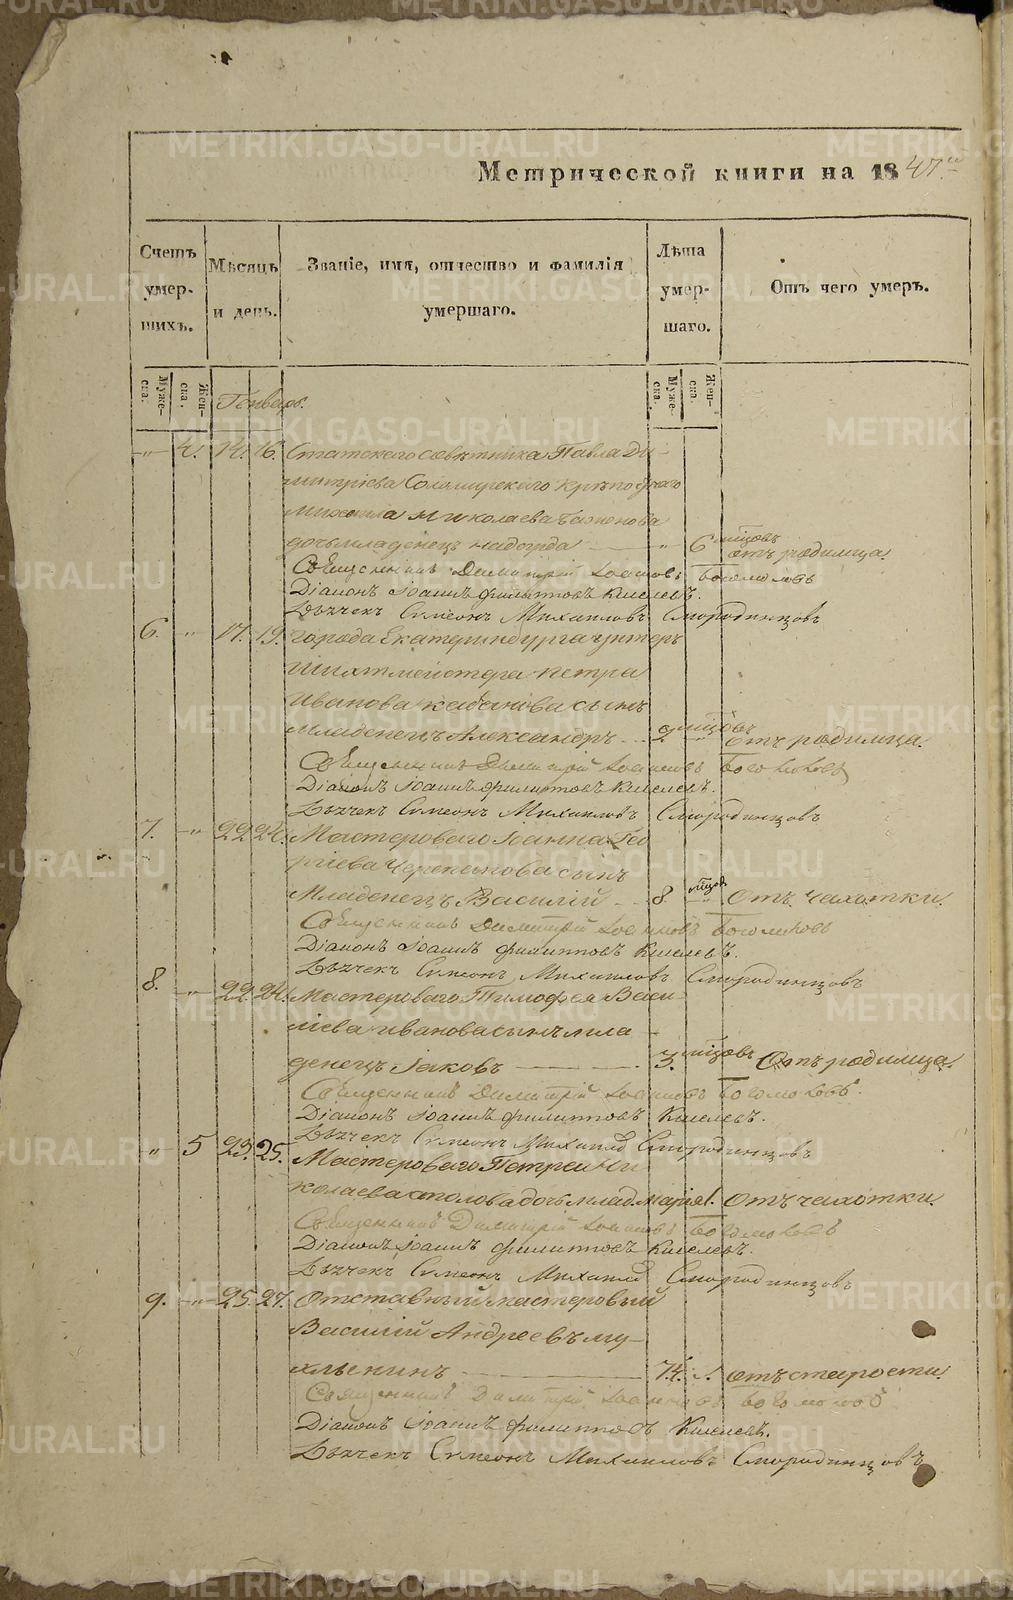 Метрической книги на 1847
Счетъ умер- шихъ.
Мѣсяцъ и день.
Званіе, имя, отчество и фамилія умершаго.
Лѣта умер- шаго.
Отъ чего умеръ.
Муже- ска.
Жен- ска.
Муже- ска.
Жен- ска.
Генварь.
4. 14. 16. Статского совѣтника Павла Ди-
митріева Соломирского крѣпостнаго
Михаила Николаева
дочь младенецъ 6 мѣсцовъ отъ родимца.
Священникъ Димитрій Іоанновъ Богомоловъ
Діаконъ Іоаннъ Филипповъ Киселевъ.
Дьячекъ Симеонъ Михаиловъ Смородинцовъ
6. " 17. 19. города Екатеринбурга унтеръ
шихтмейстера Петра
Иванова Кабанова сынъ
младенецъ Александръ 2 мѣсцовъ отъ родимца.
Священникъ Димитрій Іоанновъ Богомоловъ
Діаконъ Іоаннъ Филипповъ Киселевъ.
Дьячекъ Симеонъ Михаиловъ Смородинцовъ
7. " 22 24. Мастероваго Іоанна Гео-
ргіева Черепанова сынъ
младенецъ Василій 8 мѣсцов. Отъ чахотки.
Священникъ Димитрій Іоанновъ Богомоловъ
Діаконъ Іоаннъ Филипповъ Киселевъ.
Дьячекъ Симеонъ Михаиловъ Смородинцовъ
8. " 22. 24. Мастероваго Тимофея Васи-
лiева Иванова сынъ мла-
денецъ Іаковъ 3. мѣсцовъ Отъ родимца.
Священникъ Димитрій Іоанновъ Богомоловъ.
Діаконъ Іоаннъ Филипповъ Киселевъ.
Дьячекъ Симеонъ Михаилов Смородинцовъ
" 5 23. 25. Мастероваго Петра Ни-
колаева дочь млад. Марія 1. Отъ чахотки.
Священникъ Димитрій Іоанновъ Богомоловъ
Діаконъ Іоаннъ Филипповъ Киселевъ.
Дьячекъ Симеонъ Михаилов Смородинцовъ
9. " 25. 27. Отставный мастеровый
Василій Андреевъ Му-
74. отъ старости.
Священникъ Димитрій Іоанновъ Богомоловъ
Діаконъ Іоаннъ Филипповъ Киселевъ.
Дьячекъ Симеонъ Михаиловъ Смородинцовъ
METRIKI.GASO-URAL.RU